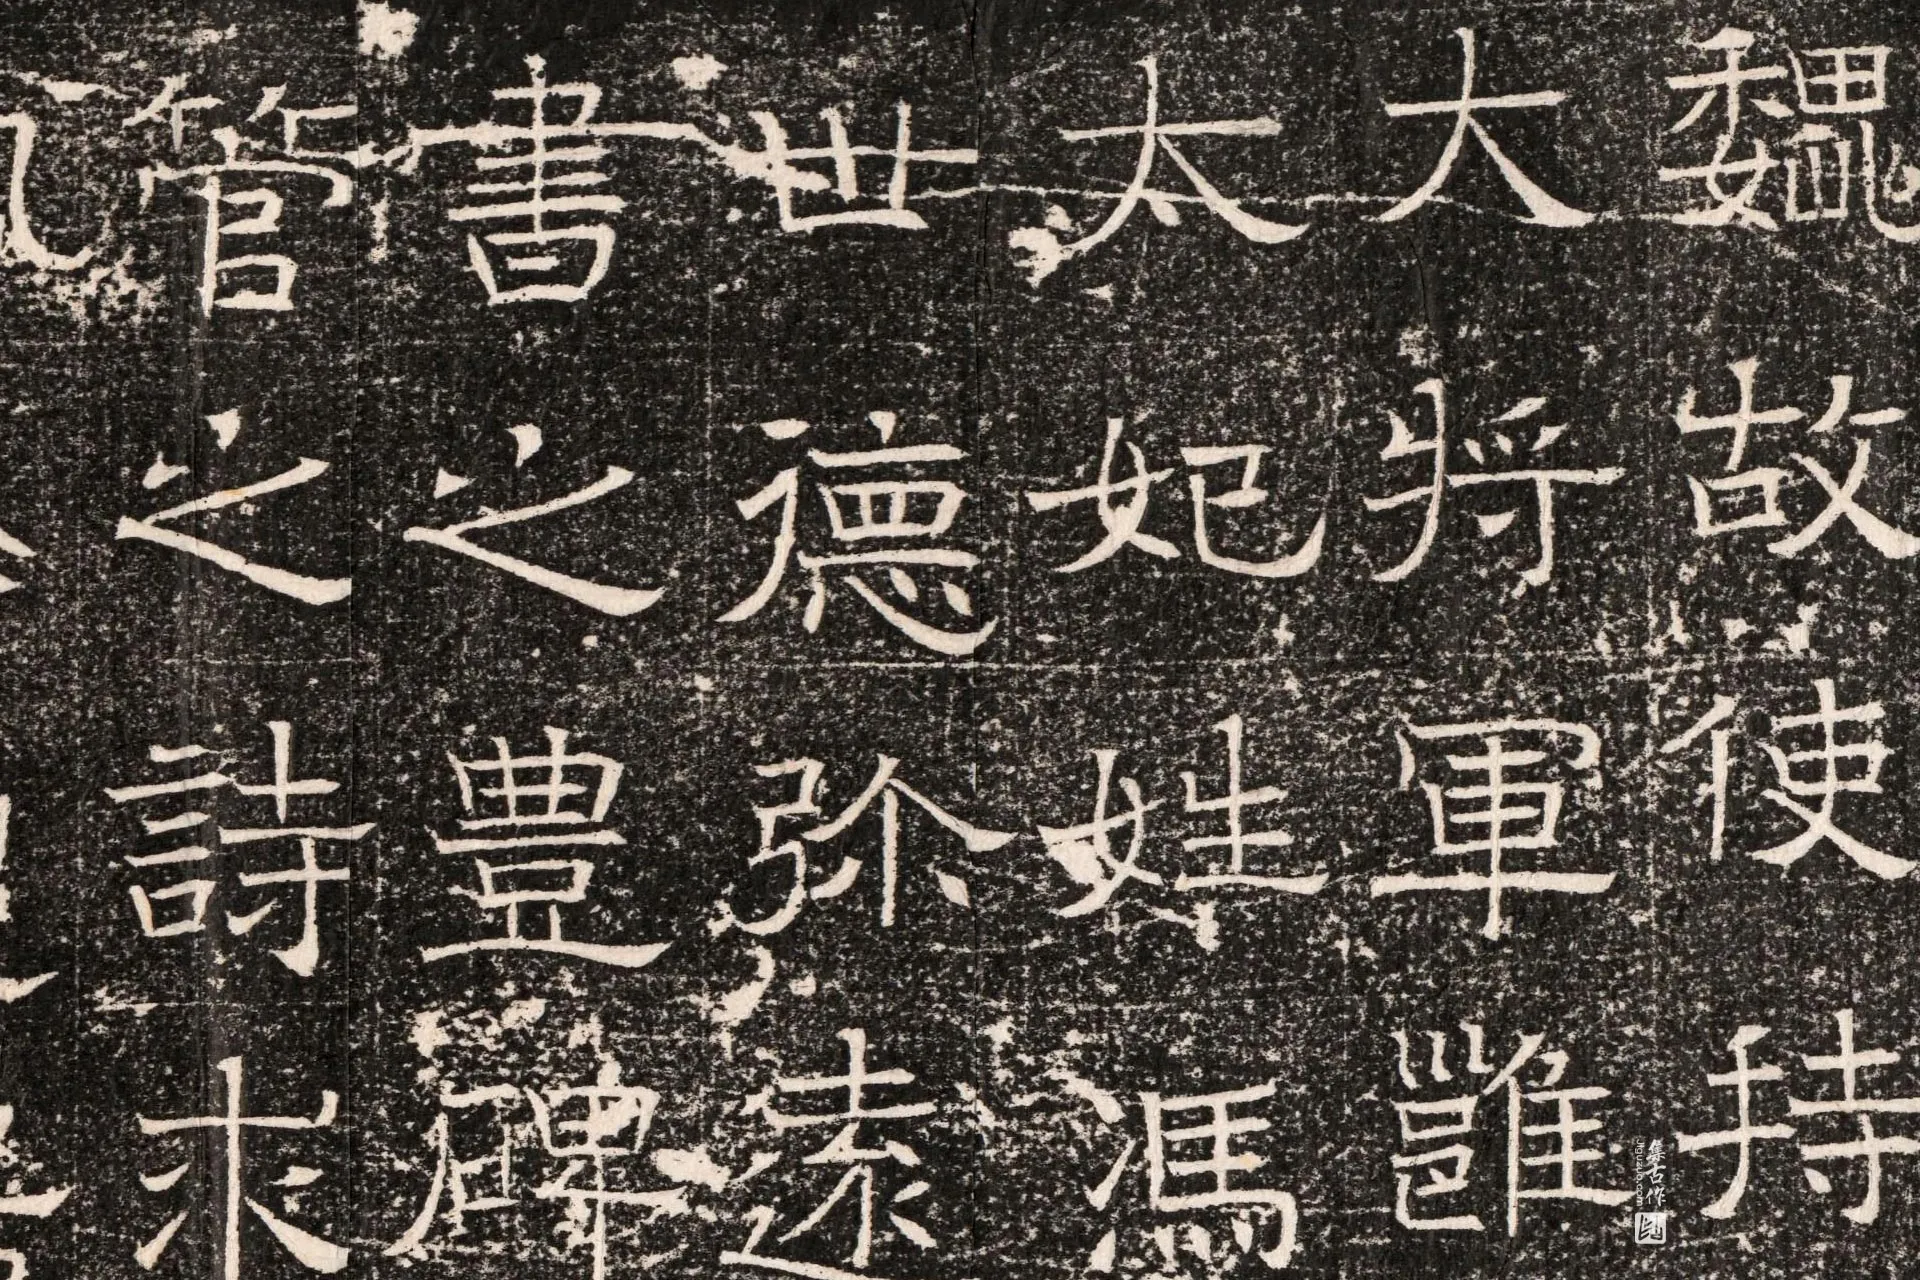 魏故使持
大將軍雝
太妃姓馮
世德弥遠
書之豊碑
管之詩求
集古作